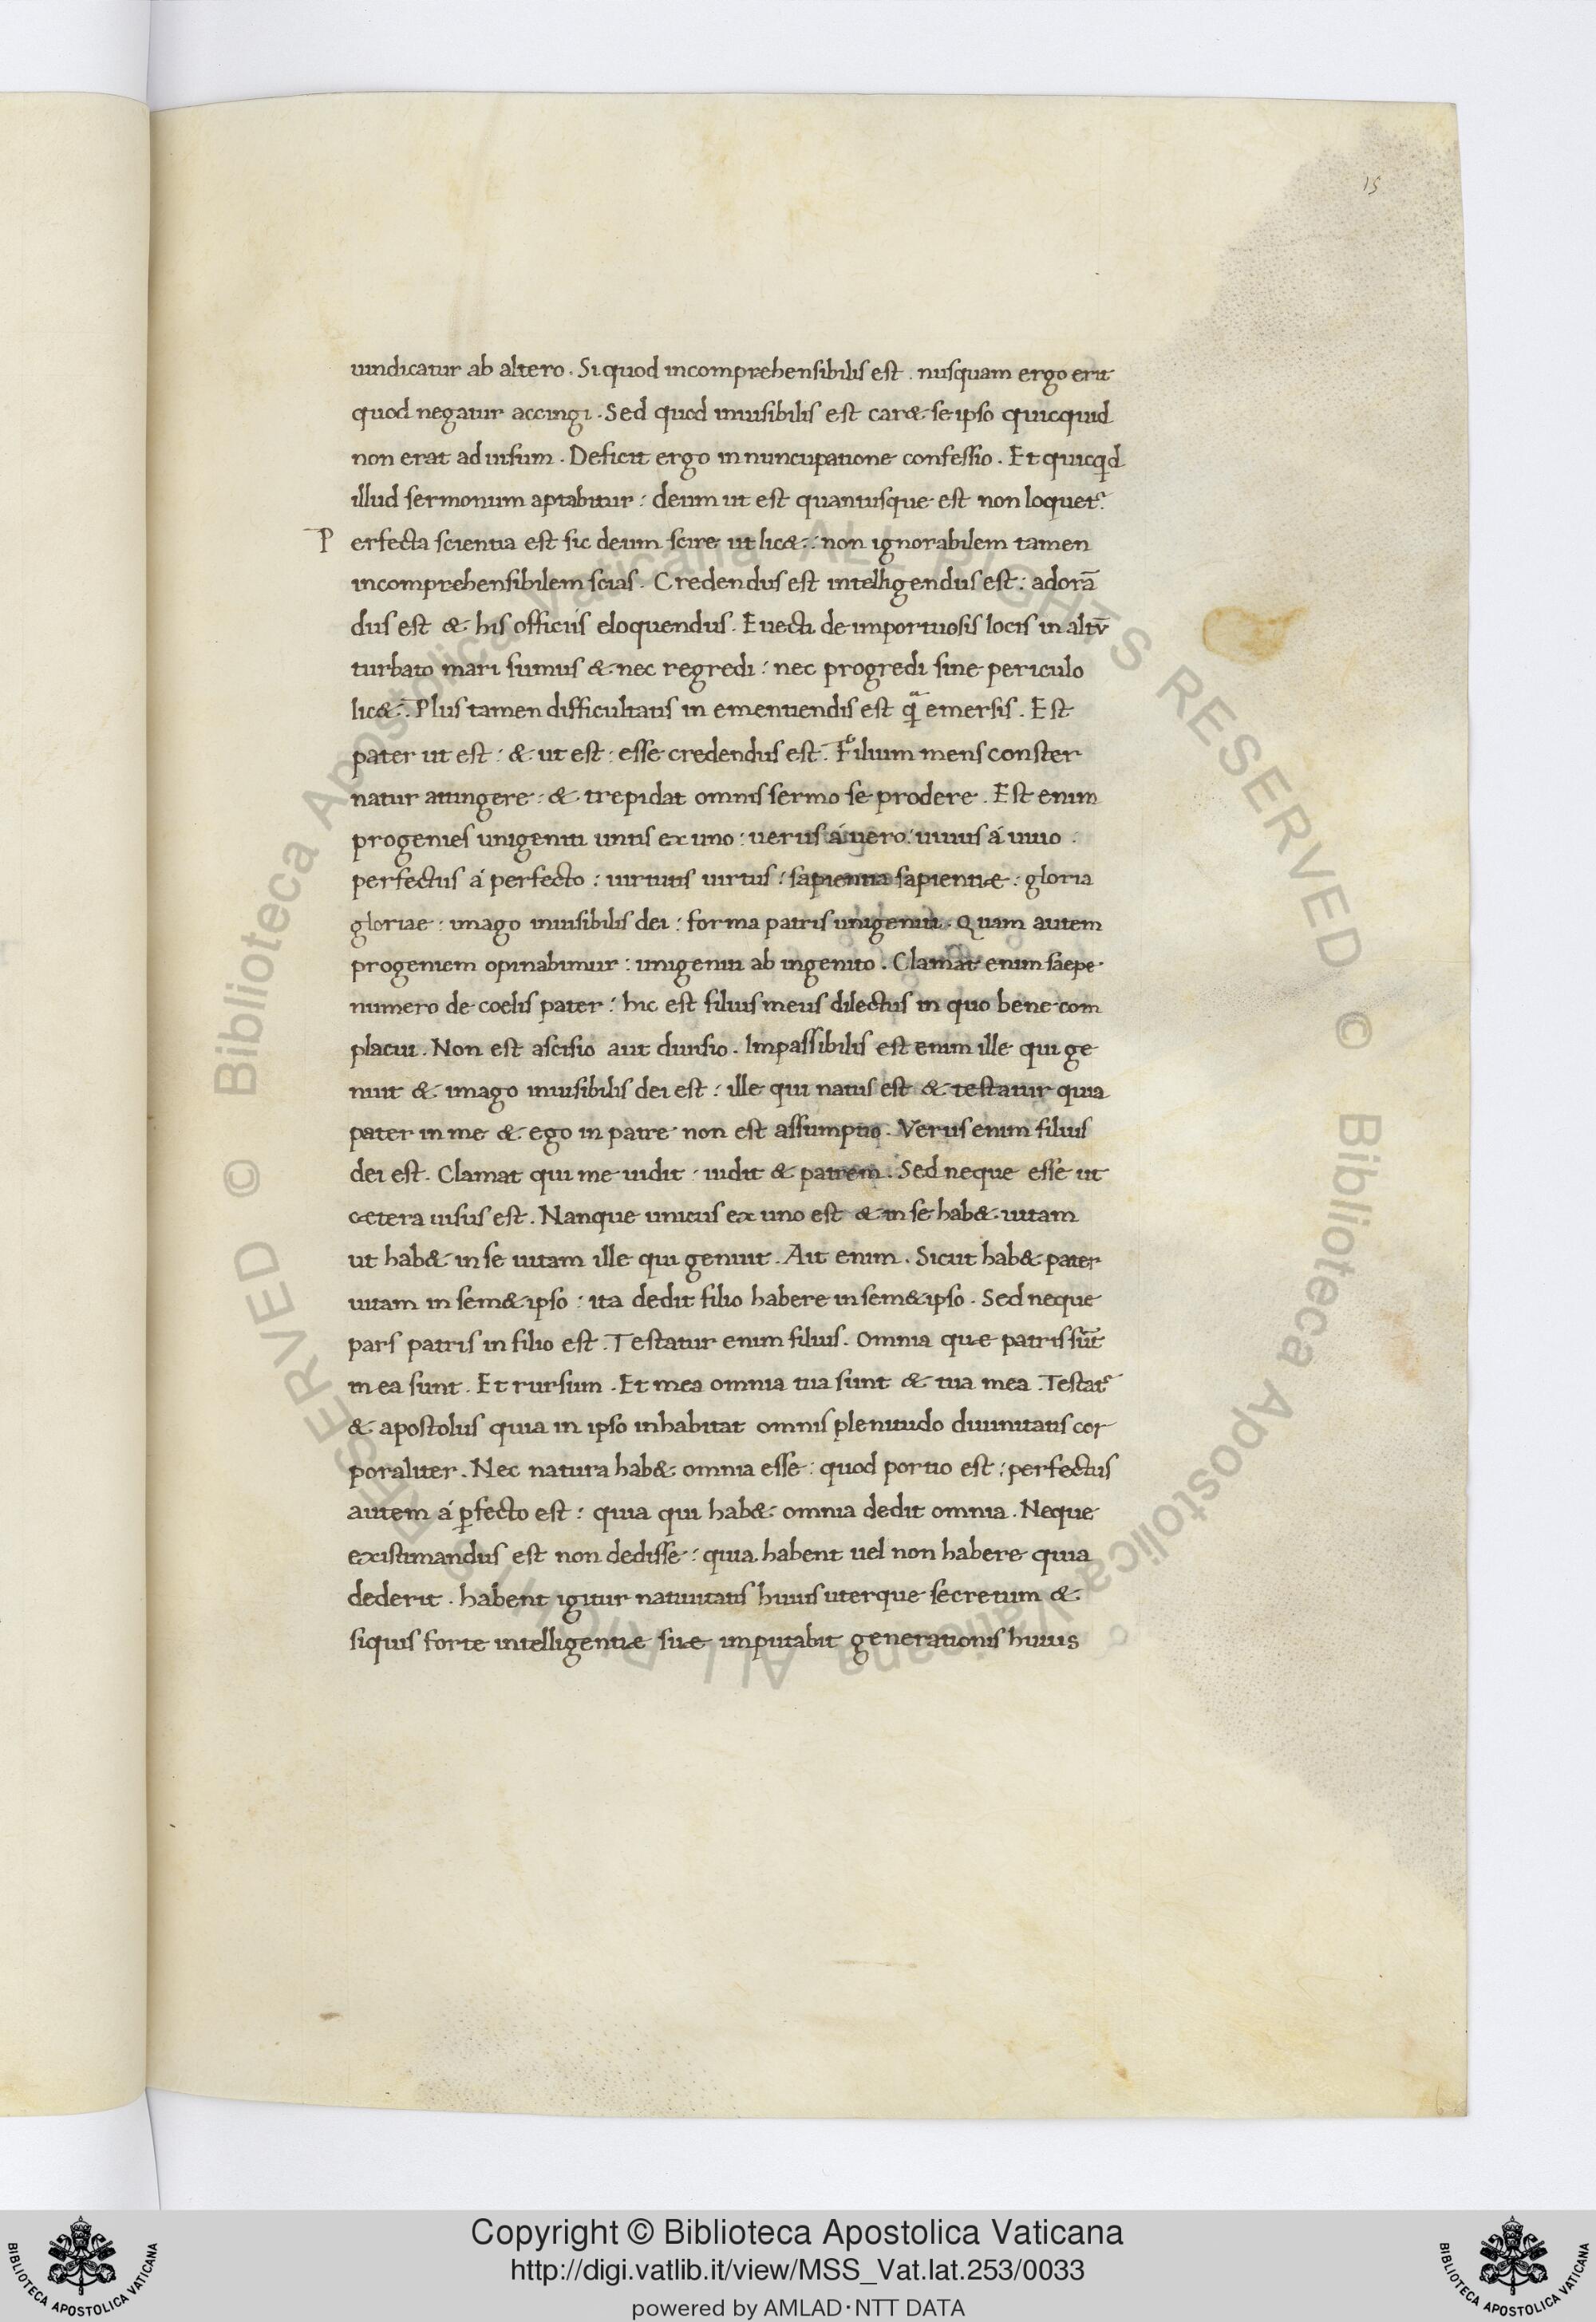 15
uindicatur ab altero. Si quod incomprehensibilis est. nusquam ergo erit
quod negatur accingi. Sed quod inuisibilis est car& se ipso quicquid
non erat ad uisum. Deficit ergo in nuncupatione confessio. Et quicqd
illud sermonum aptabitur: deum ut est quantusque est non loquet᷑.
Perfecta scientia est sic deum scire ut lic&: non ignorabilem tamen
incomprehensibilem scias. Credendus est intelligendus est: adorā
dus est & his officiis eloquendus. Euecti de importuosis locis in altū
turbato mari sumus & nec regredi: nec progredi sine periculo
lic&. Plus tamen difficultatis in ementiendis est qͣ emersis. Est
pater ut est: & ut est: esse credendus est. Filium mens conster
natur attingere: & trepidat omnis sermo se prodere. Est enim
progenies unigeniti unus ex uno: uerus á uero: uiuus á uiuo:
perfectus á perfecto: uirtutis uirtus: sapientia sapientiæ: gloria
gloriae: imago inuisibilis dei: forma patris unigeniti. Quam autem
progeniem opinabimur: unigeniti ab ingenito. Clamat enim saepe
numero de coelis pater: hic est filius meus dilectus in quo bene com
placui. Non est ascisio aut diuisio. Impassibilis est enim ille qui ge
nuit & imago inuisibilis dei est: ille qui natus est & testatur quia
pater in me & ego in patre non est assumptio. Verus enim filius
dei est. Clamat qui me uidit: uidit & patrem. Sed neque esse ut
cætera uisus est. Nanque unicus ex uno est & in se hab& uitam
ut hab& in se uitam ille qui genuit. Ait enim. Sicut hab& pater
uitam in sem&ipso: ita dedit filio habere in sem&ipso. Sed neque
pars patris in filio est. Testatur enim filius. Omnia quæ patris sūt
mea sunt. Et rursum. Et mea omnia tua sunt & tua mea. Testat᷑
& apostolus quia in ipso inhabitat omnis plenitudo diuinitatis cor
poraliter. Nec natura hab& omnia esse: quod portio est: perfectus
autem á ꝑfecto est: quia qui hab& omnia dedit omnia. Neque
existimandus est non dedisse: quia habent uel non habere quia
dederit. habent igitur natiuitatis huius uterque secretum &
siquis forte intelligentiæ suæ imputabit generationis huius
Copyright © Biblioteca Apostolica Vaticana
http://digi.vatlib.it/view/MSS_Vat.lat.253/0033
powered by AMLAD·NTT DATA
BIBLIOTECA APOSTOLICA VATICANA
BIBLIOTECA APOSTOLICA VATICANA
© Biblioteca Apostolica Vaticana ALL RIGHTS RESERVED © Biblioteca Apostolica Vaticana ALL RIGHTS RESERVED